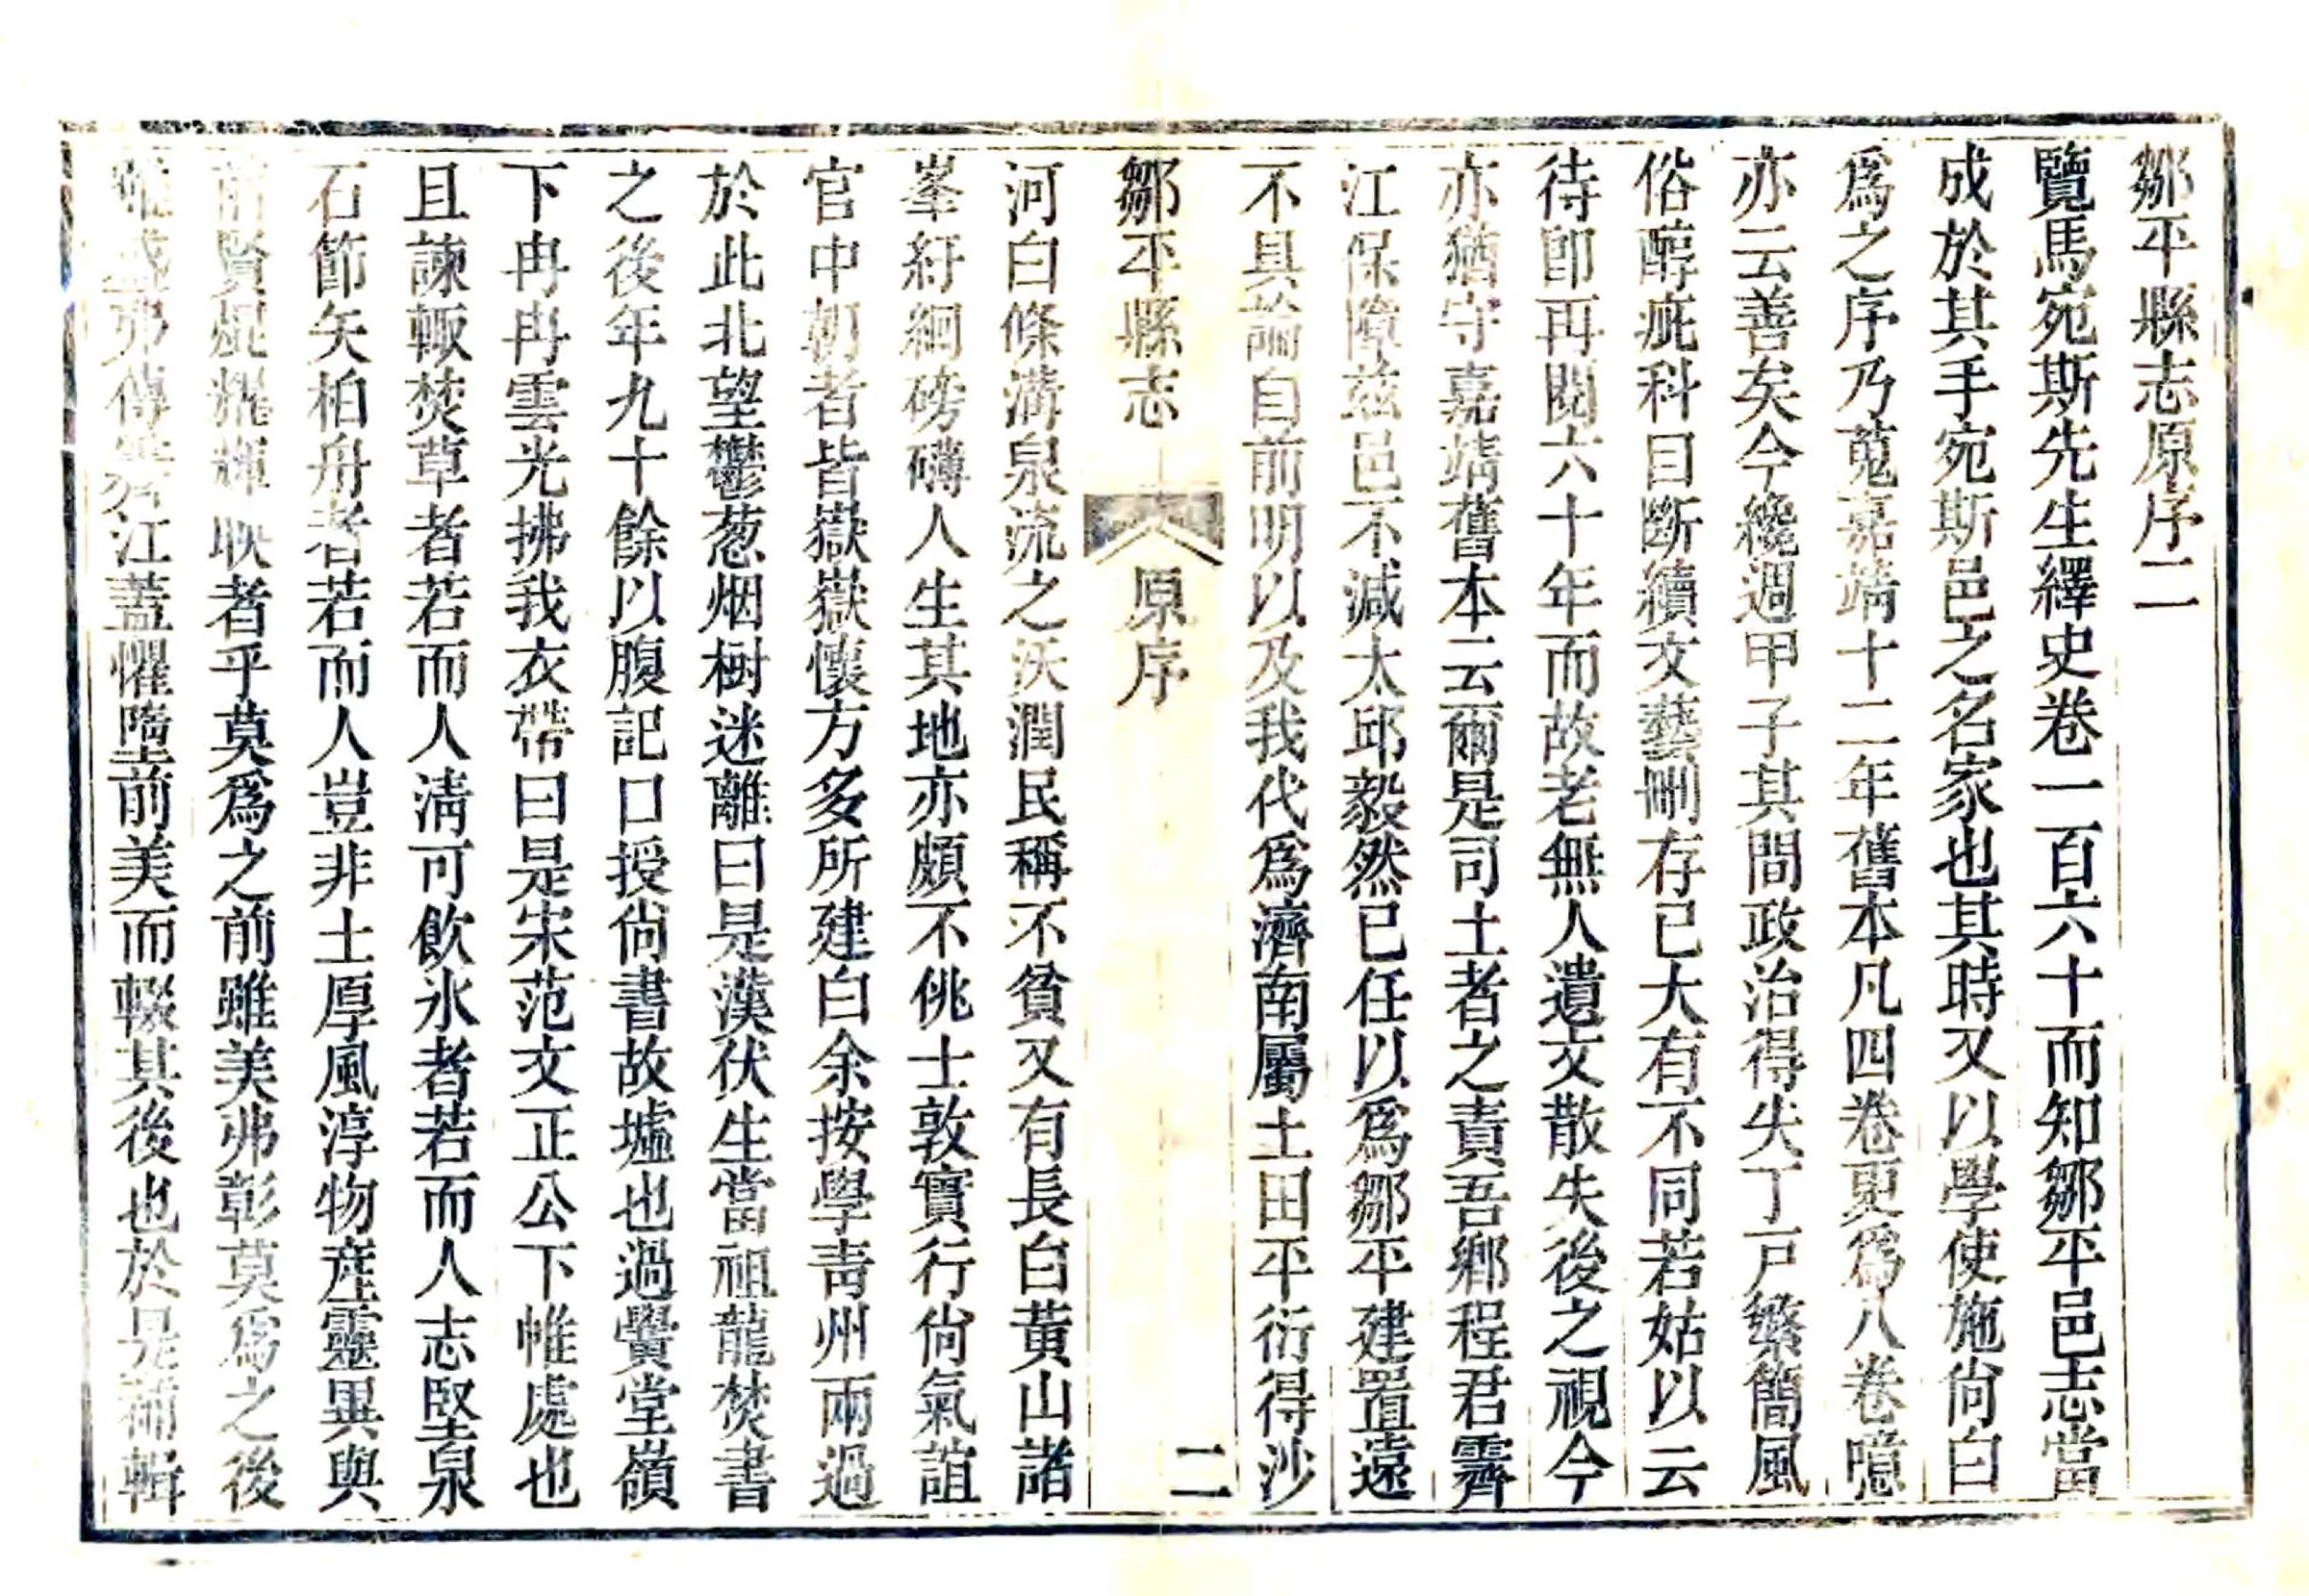 鄒平縣志原序二
覽馬宛斯先生繹史卷一百六十而知鄒平邑志當
成於其手宛斯邑之名家也其時又以學使施尙白
爲之序乃蒐嘉靖十二年舊本凡四卷更爲八卷噫
亦云善矣今纔週甲子其間政治得失丁戸繁簡風
俗醇疵科目斷續文藝刪存已大有不同若姑以云
待卽再閱六十年而故老無人遺文散失後之視今
亦猶守嘉靖舊本云爾是司土者之責吾鄉程君霽
江保障茲邑不減太邱毅然已任以爲鄒平建置遠
不具論自前明以及我代爲濟南屬土田平衍得沙
鄒平縣志 原序 二
河白條溝泉流之沃潤民稱不貧又有長白黃山諸
峯紆絪磅礴人生其地亦頗不佻士敦實行尙氣誼
官中朝者皆嶽嶽懷方多所建白余按學靑州兩過
於此北望鬱葱烟樹迷離曰是漢伏生當祖龍焚書
之後年九十餘以腹記口授尙書故墟也過黌堂嶺
下冉冉雲光拂我衣帶曰是宋范文正公下帷處也
且諫輙焚草者若而人淸可飮氷者若而人志堅泉
石節矢柏舟者若而人豈非土厚風淳物產靈異與
前賢焜耀輝耿者乎莫爲之前雖美弗彰莫爲之後
雖盛弗傳霽江蓋懼墮前美而輟其後也於是補輯